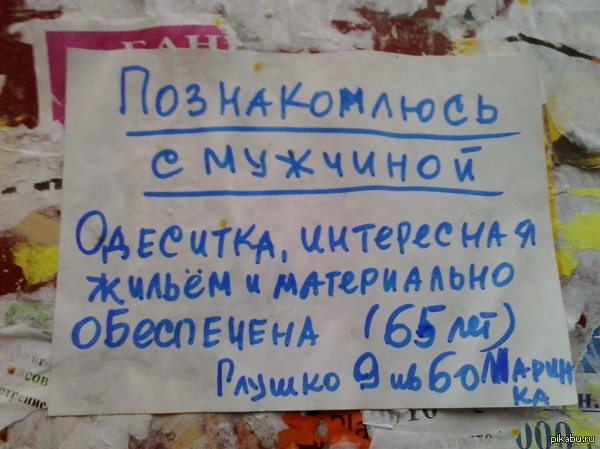 БАН
ПОЗНАКОМЛЮСЬ
С МУЖЧИНОЙ
ОДЕСИТКА, ИНТЕРЕСНАЯ
ЖИЛЬЁМ И МАТЕРИАЛЬНО
ОБЕСПЕЧЕНА (65 лет)
ГЛУШКО 9 кв 60 МАРИН
КА
000
pikabu.ru